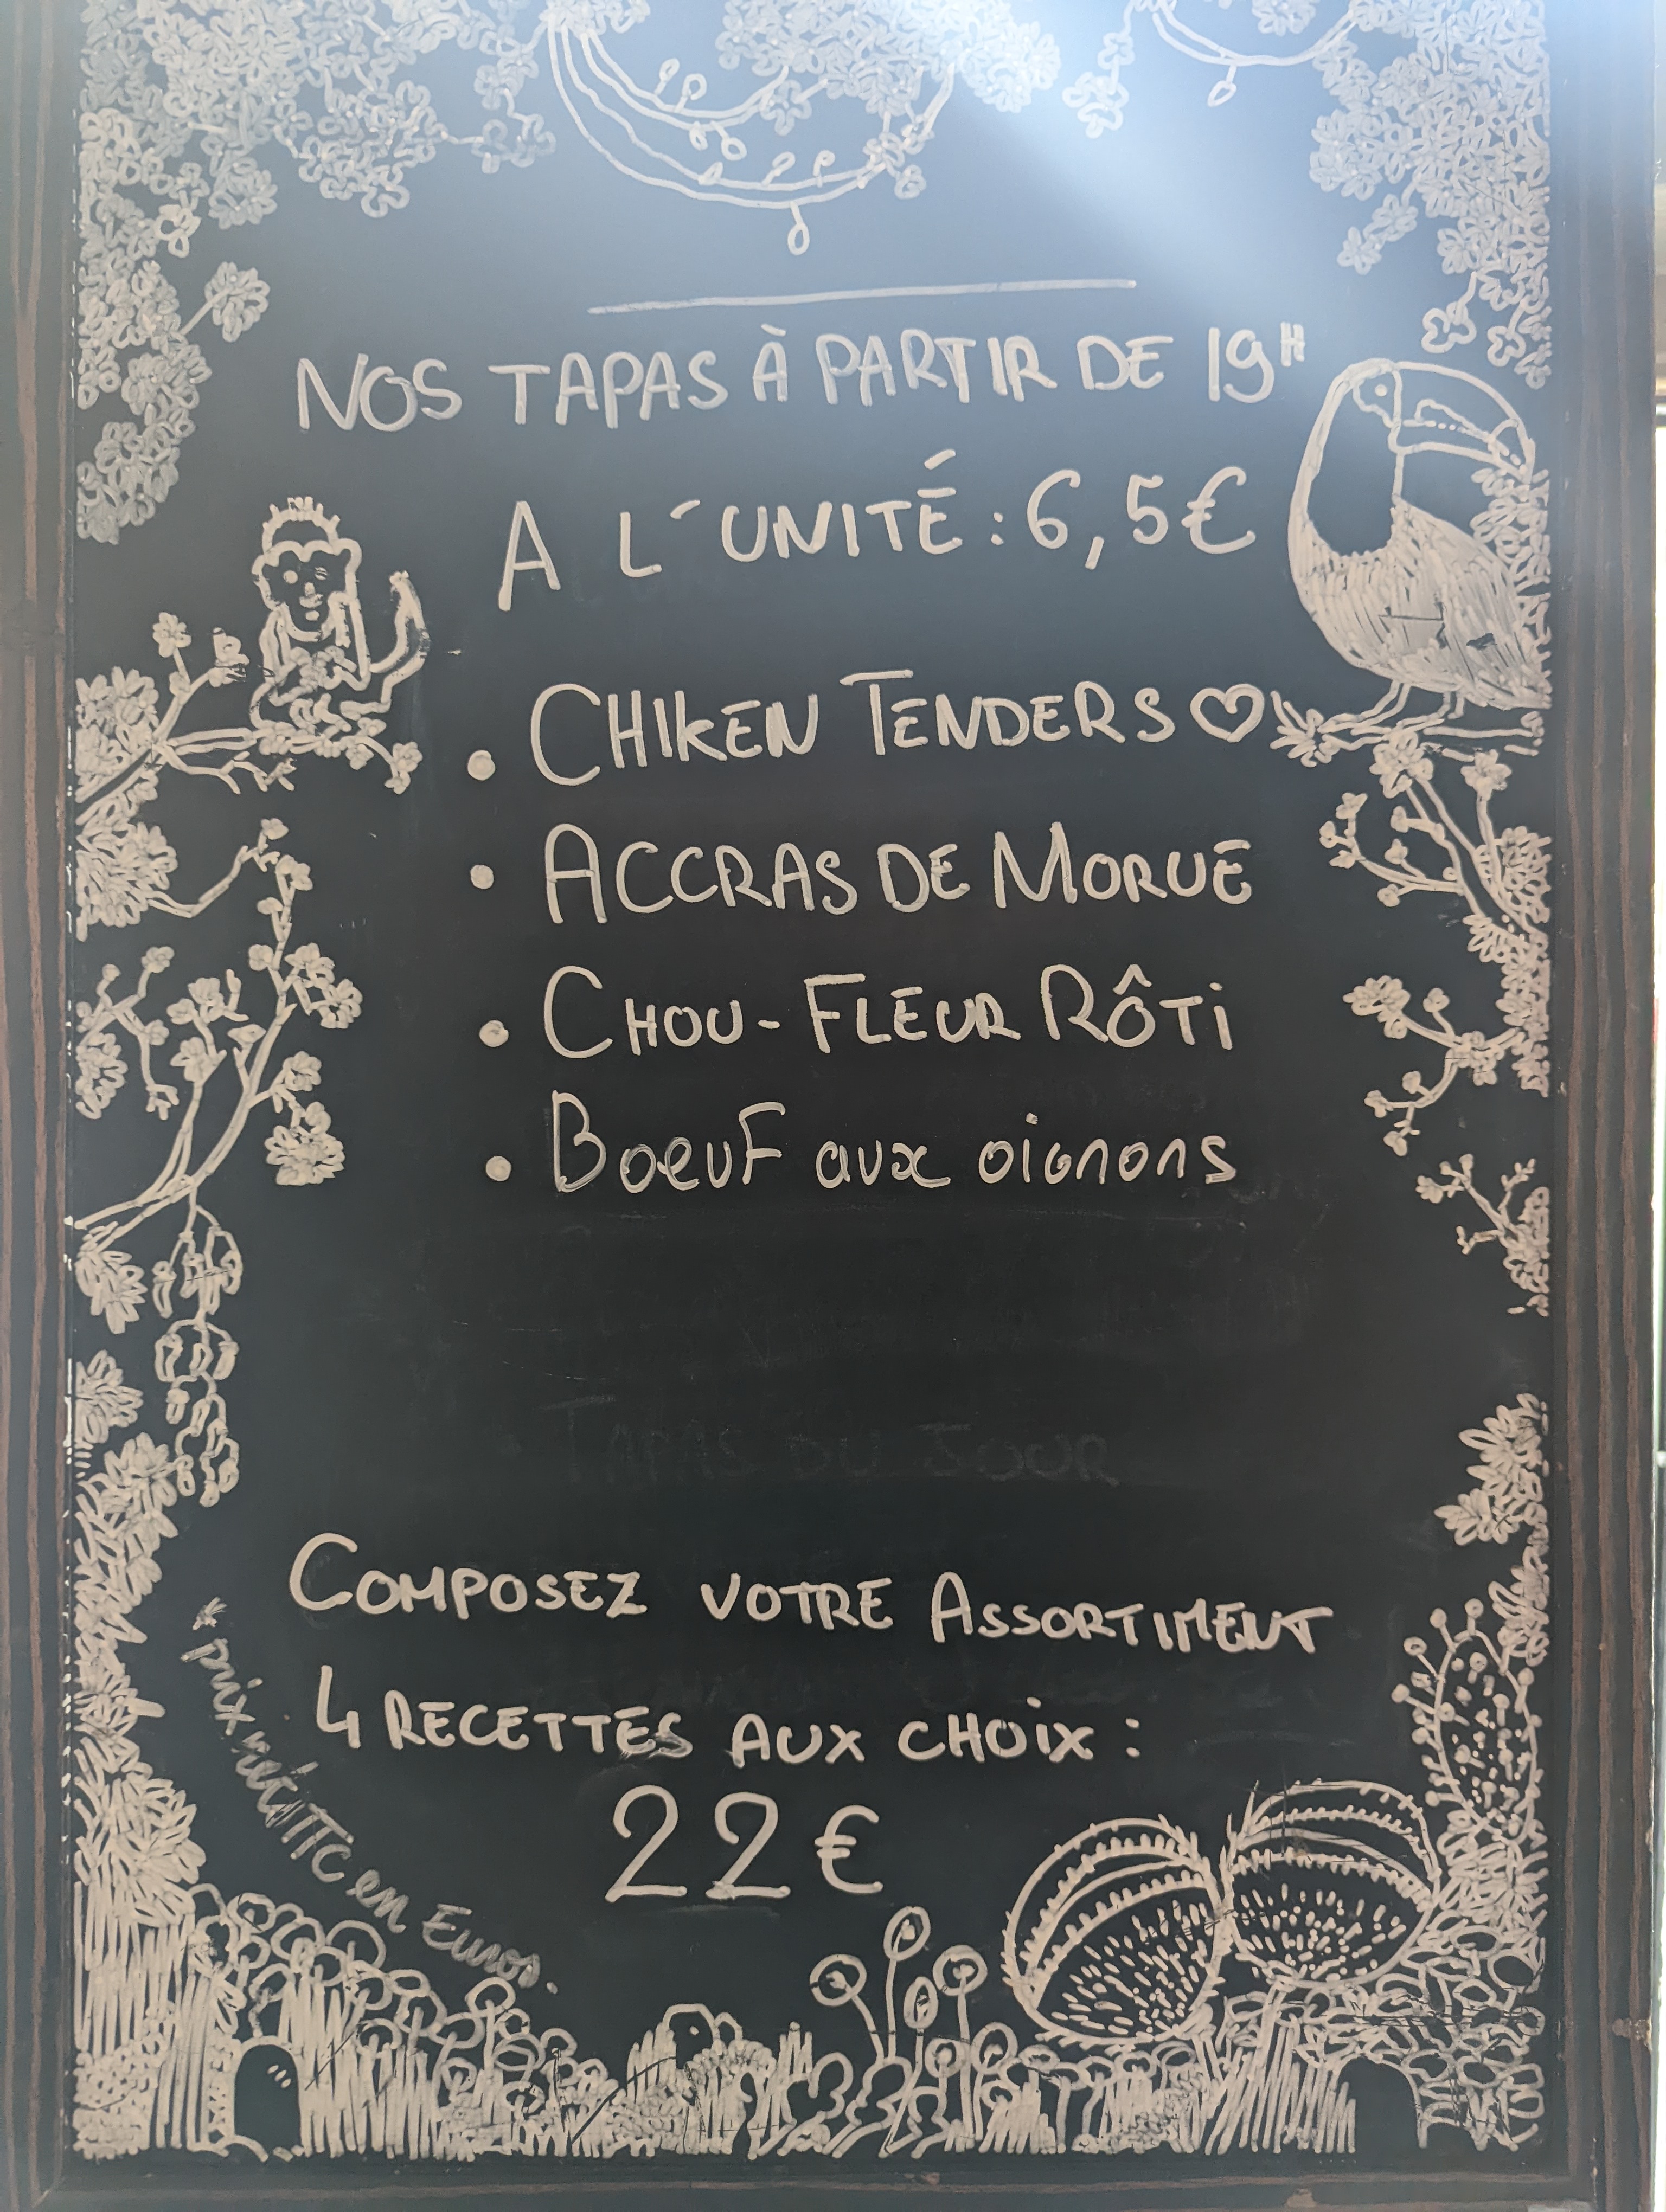 NOS TAPAS À PARTIR DE 19H
A L'UNITÉ : 6,5€
• CHIKEN TENDERS ♡
• ACCRAS DE MORUE
• CHOU-FLEUR RÔTi
• BOEUF aux oignons
TAPAS DU JOUR
COMPOSEZ VOTRE ASSORTIMENT
4 RECETTES AUX CHOIX :
22€
* prix net TTC en Euros.